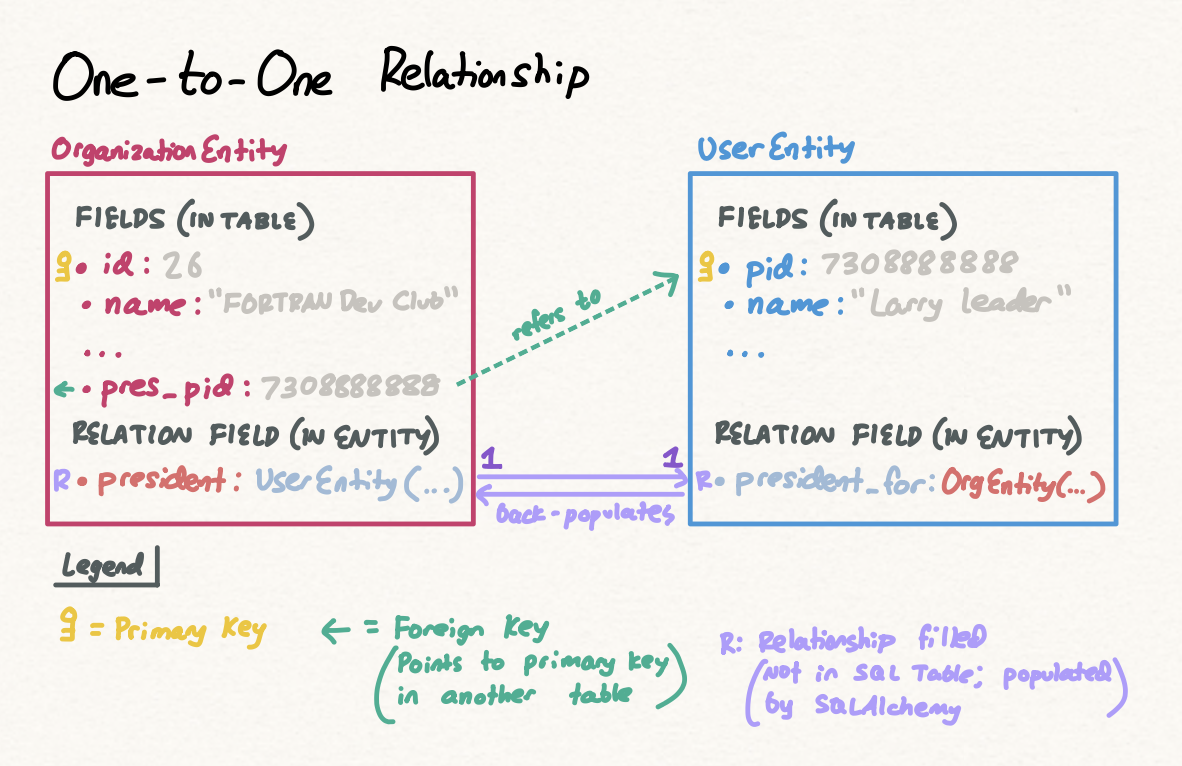 One-to-One Relationship
OrganizationEntity
FIELDS (IN TABLE)
• id: 26
• name: "FORTRAN Dev Club"
...
← • pres_pid: 7308888888
RELATION FIELD (IN ENTITY)
R • president: UserEntity(...)
refers to
1 1
back-populates
UserEntity
FIELDS (IN TABLE)
• pid: 7308888888
• name: "Larry leader"
...
RELATION FIELD (IN ENTITY)
R • president_for: OrgEntity(...)
Legend
= Primary Key
← = Foreign Key
(Points to primary key
in another table)
R: Relationship filled
(Not in SQL Table; populated
by SQLAlchemy)